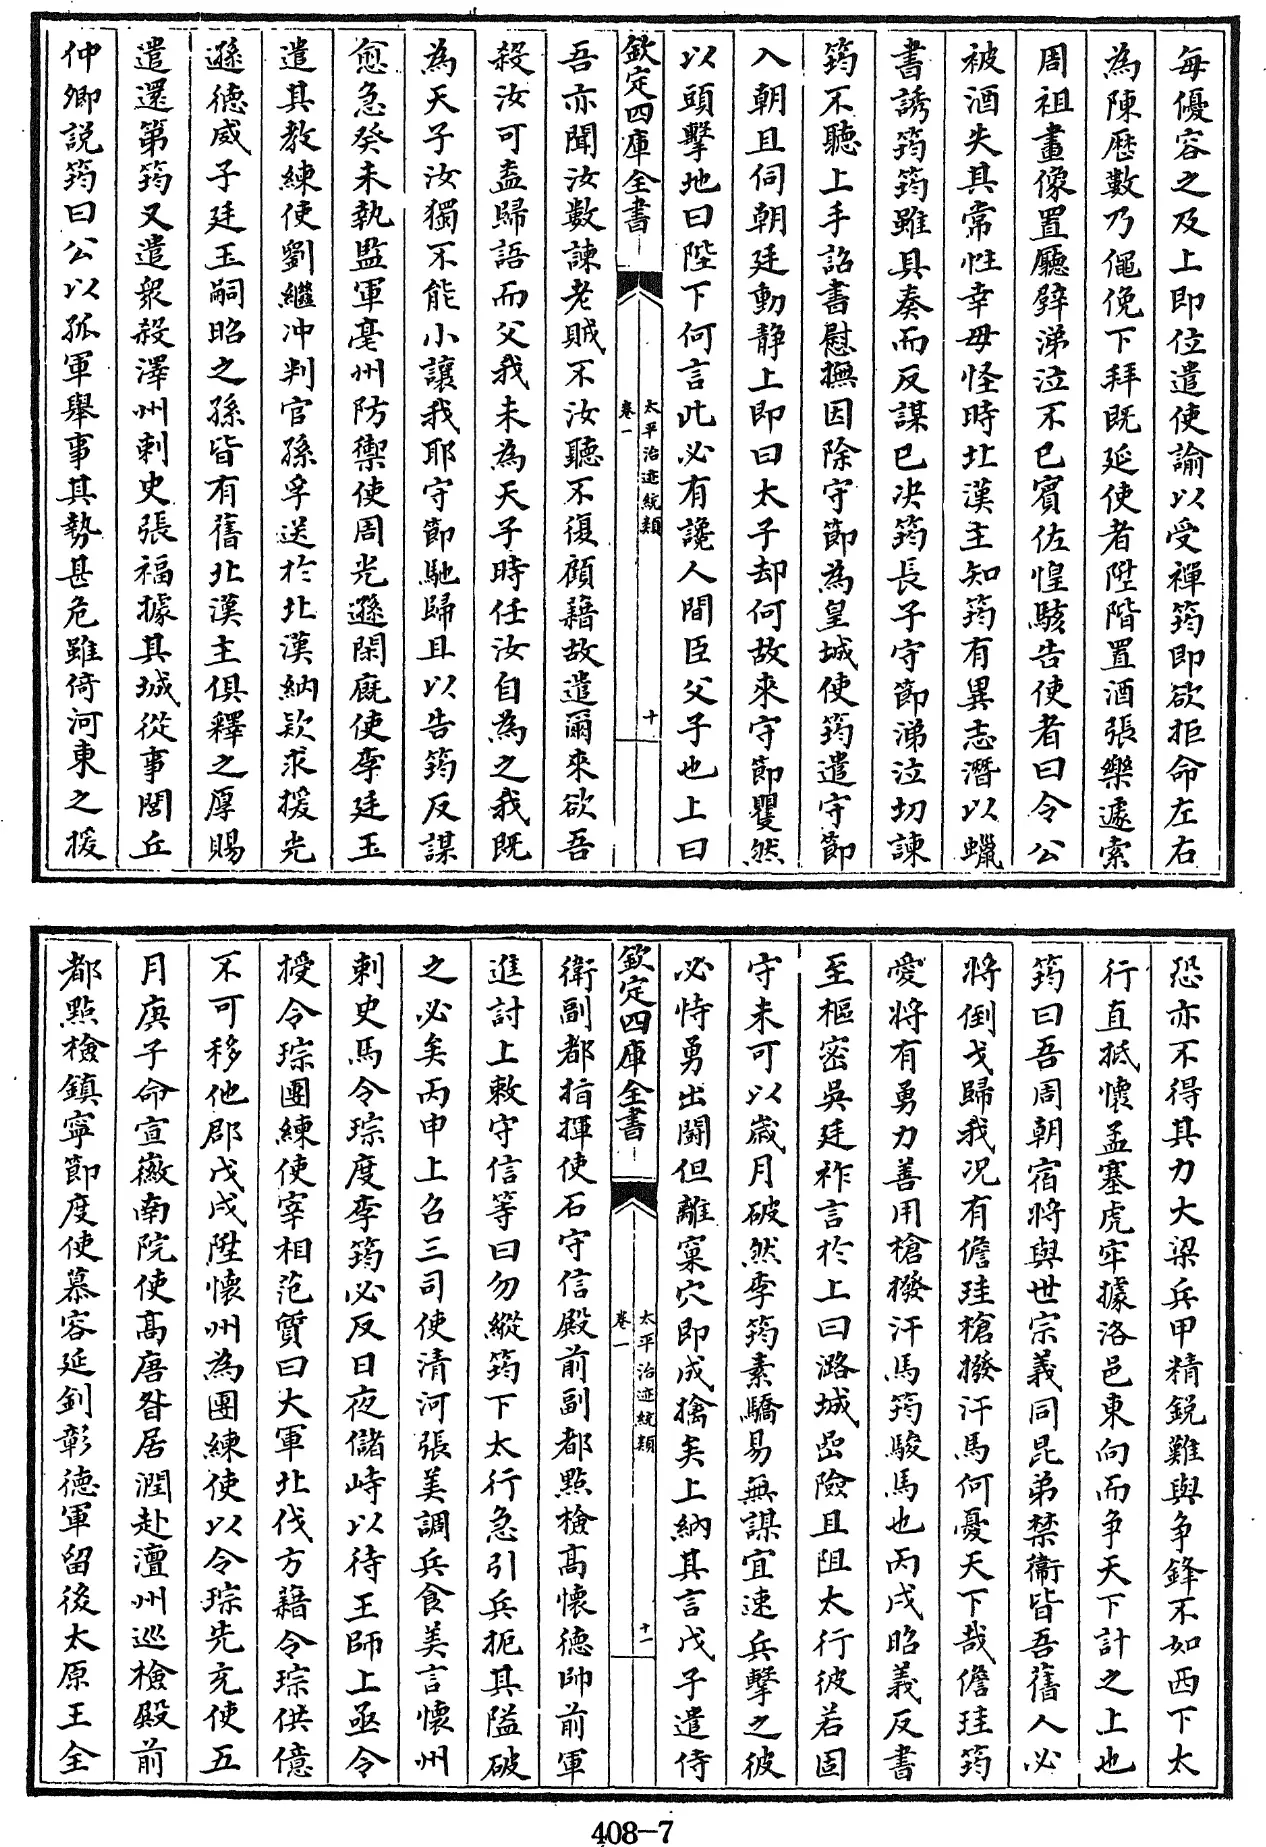 每優容之及上即位遣使諭以受禪筠即欲拒命左右
為陳歴數乃僶俛下拜既延使者陞階置酒張樂遽索
周祖畫像置廳壁涕泣不已賓佐惶駭告使者曰令公
被酒失其常性幸毋怪時北漢主知筠有異志潛以蠟
書誘筠筠雖具奏而反謀已決筠長子守節涕泣切諫
筠不聽上手詔書慰撫因除守節為皇城使筠遣守節
入朝且伺朝廷動静上即曰太子却何故來守節矍然
以頭擊地曰陛下何言此必有讒人間臣父子也上曰
欽定四庫全書
太平治迹統類
卷一
十
吾亦聞汝數諫老賊不汝聽不復顧藉故遣爾來欲吾
殺汝可盍歸語而父我未為天子時任汝自為之我既
為天子汝獨不能小讓我耶守節馳歸且以告筠反謀
愈急癸未執監軍亳州防禦使周光遜閑廐使李廷玉
遣其教練使劉繼冲判官孫孚送於北漢納欵求援光
遜德威子廷玉嗣昭之孫皆有舊北漢主俱釋之厚賜
遣還第筠又遣衆殺澤州刺史張福據其城從事閭丘
仲卿説筠曰公以孤軍舉事其勢甚危雖倚河東之援
恐亦不得其力大梁兵甲精鋭難與争鋒不如西下太
行直抵懷孟塞虎牢據洛邑東向而争天下計之上也
筠曰吾周朝宿將與世宗義同昆弟禁衞皆吾舊人必
將倒戈歸我况有儋珪槍撥汗馬何憂天下哉儋珪筠
愛將有勇力善用槍撥汗馬筠駿馬也丙戌昭義反書
至樞密吳廷祚言於上曰潞城嵒險且阻太行彼若固
守未可以歲月破然李筠素驕易無謀宜速兵擊之彼
必恃勇出鬭但離窠穴即成擒矣上納其言戊子遣侍
欽定四庫全書
太平治迹統類
卷一
十一
衛副都指揮使石守信殿前副都點檢高懷德帥前軍
進討上敕守信等曰勿縱筠下太行急引兵扼其隘破
之必矣丙申上召三司使清河張美調兵食美言懷州
刺史馬令琮度李筠必反日夜儲峙以待王師上亟令
授令琮團練使宰相范質曰大軍北伐方藉令琮供億
不可移他郡戊戌陞懷州為團練使以令琮先充使五
月庚子命宣徽南院使高唐昝居潤赴澶州巡檢殿前
都點檢鎮寧節度使慕容延釗彰德軍留後太原王全
408-7